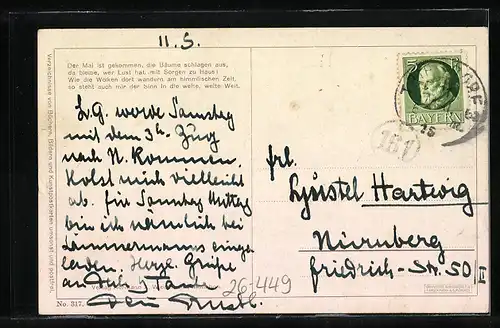 11.5.
Der Mai ist gekommen, die Bäume schlagen aus,
da bleibe, wer Lust hat, mit Sorgen zu Haus!
Wie die Wolken dort wandern am himmlischen Zelt,
so steht auch mir der Sinn in die weite, weite Welt.
L. G. werde Samstag
mit dem 3h Zug
nach N. kommen.
Holst mich vielleicht
ab. für Samstag Mittag
bin ich nämlich bei
Zimmermanns einge-
laden. Herzl. Grüße
an Dein
No. 317.
26-449
Verzeichnisse von Büchern, Bildern und Kunstpostkarten umsonst und postfrei.
5
BAYERN
15
(151)
Frl.
Hartwig
Nürnberg
Friedrich-Str. 50 II